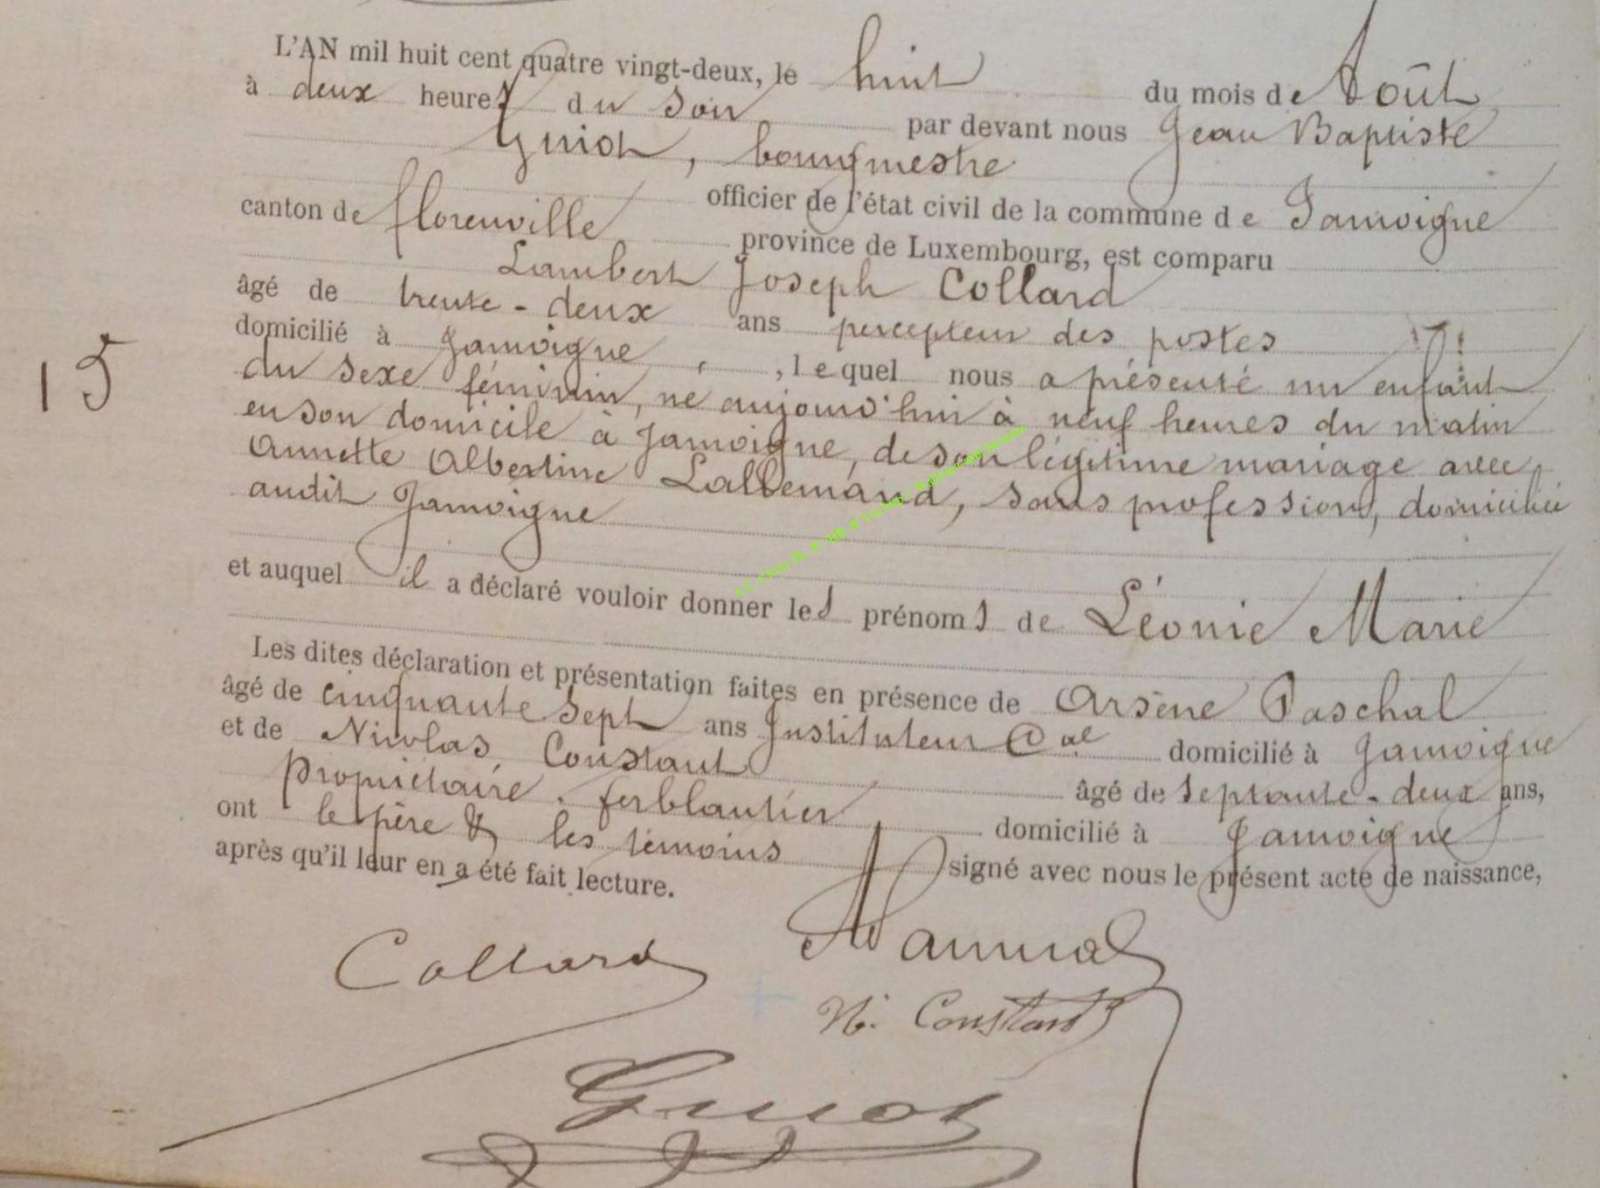 L'AN mil huit cent quatre vingt-deux, le huit du mois de Août
à deux heures du soir par devant nous Jean Baptiste
Guiot, bourgmestre
officier de l'état civil de la commune de Jamoigne
canton de florenville province de Luxembourg, est comparu
Lambert Joseph Collard
âgé de trente-deux ans percepteur des postes
domicilié à Jamoigne, lequel nous a présenté un enfant
15
du sexe féminin, né aujourd'hui à neuf heures du matin
en son domicile à Jamoigne, de son légitime mariage avec
Annette Albertine Lallemand, sans profession, domiciliée
audit Jamoigne
et auquel il a déclaré vouloir donner les prénoms de Léonie Marie
Les dites déclaration et présentation faites en présence de Arsène Paschal
âgé de cinquante sept ans Instituteur Cal domicilié à Jamoigne
et de Nicolas Constant âgé de septante-deux ans,
propriétaire ferblantier domicilié à Jamoigne
ont le père & les témoins signé avec nous le présent acte de naissance,
après qu'il leur en a été fait lecture.
Collard
N. Constant
Guiot